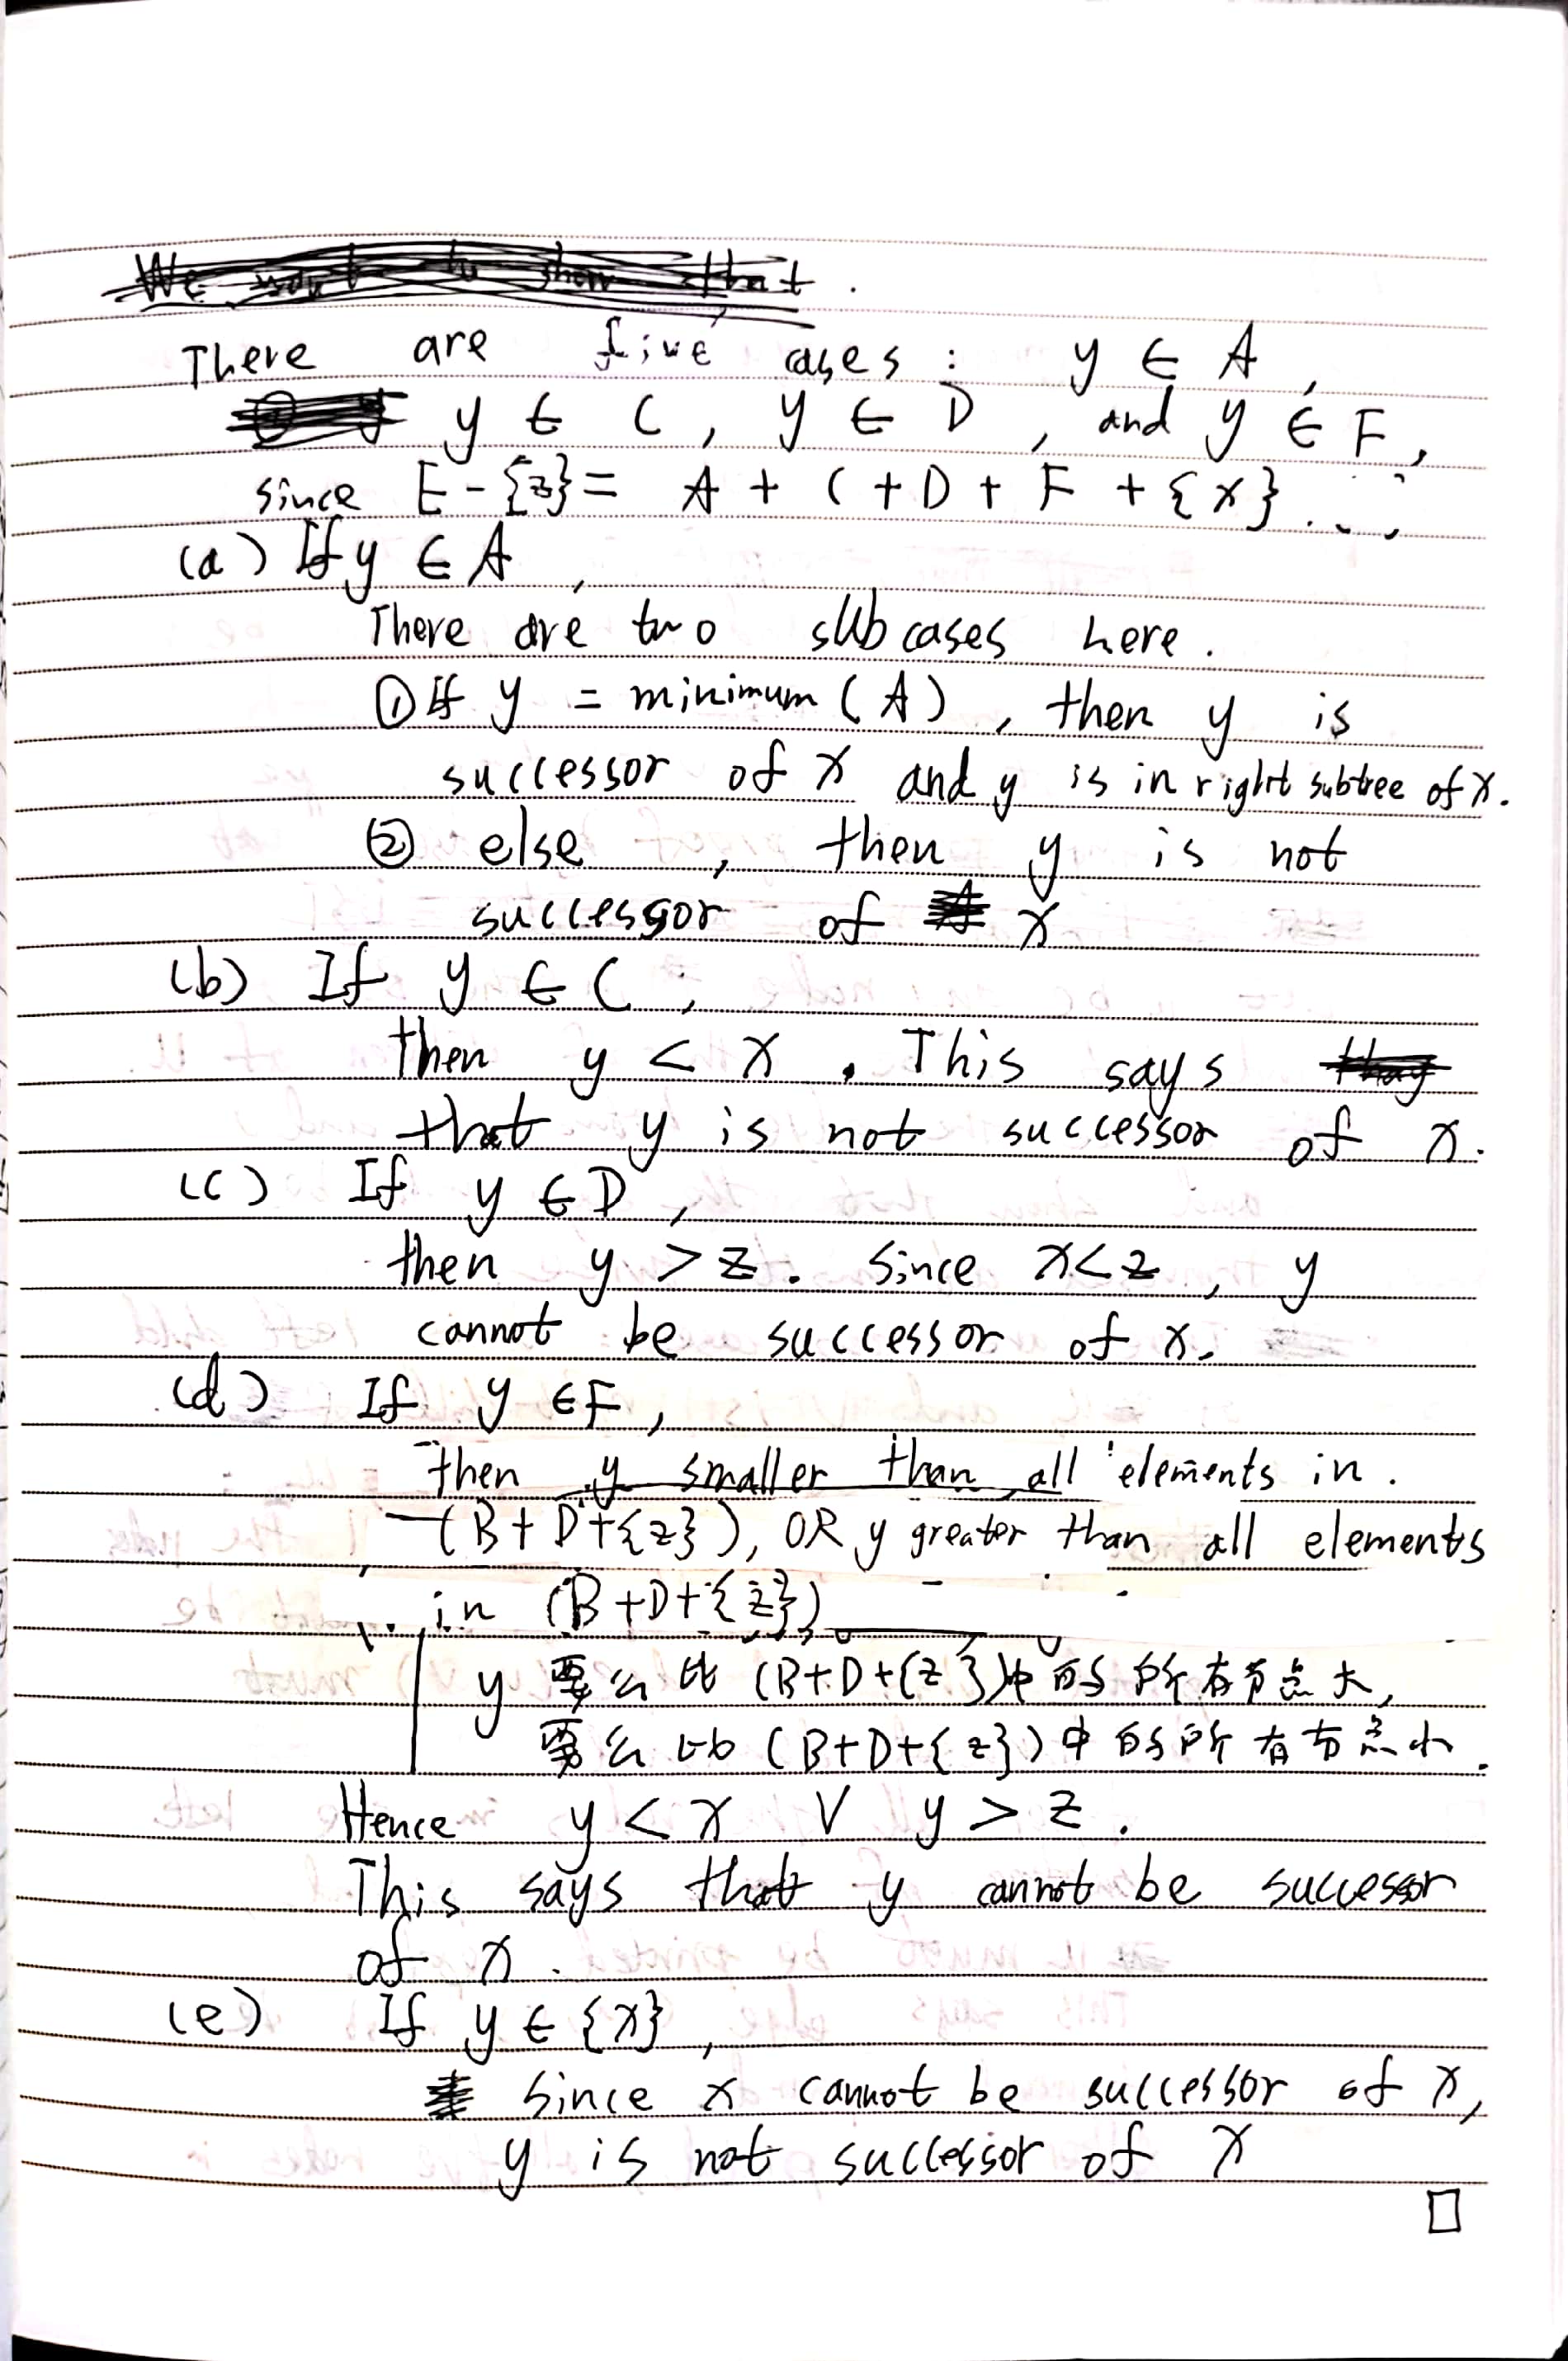 We want to show that.
There are five cases : y ∈ A,
y ∈ C, y ∈ D, and y ∈ F,
since E-{z}= A + C+D+ F +{x}.
(a) If y ∈ A,
There are two subcases here.
① If y = minimum (A), then y is
successor of x and y is in right subtree of x.
② else, then y is not
successor of x
(b) If y ∈ C,
then y < x. This says
that y is not successor of x.
(c) If y ∈ D,
then y > z. Since x<z, y
cannot be successor of x.
(d) If y ∈F,
then y smaller than all elements in
(B+D+{z}), OR y greater than all elements
in (B+D+{z})
y 要么比 (B+D+{z})中的所有节点大,
要么比 (B+D+{z})中的所有节点小.
Hence y < x ∨ y > z.
This says that y cannot be successor
of x.
(e) If y ∈ {x},
since x cannot be successor of x,
y is not successor of x
□